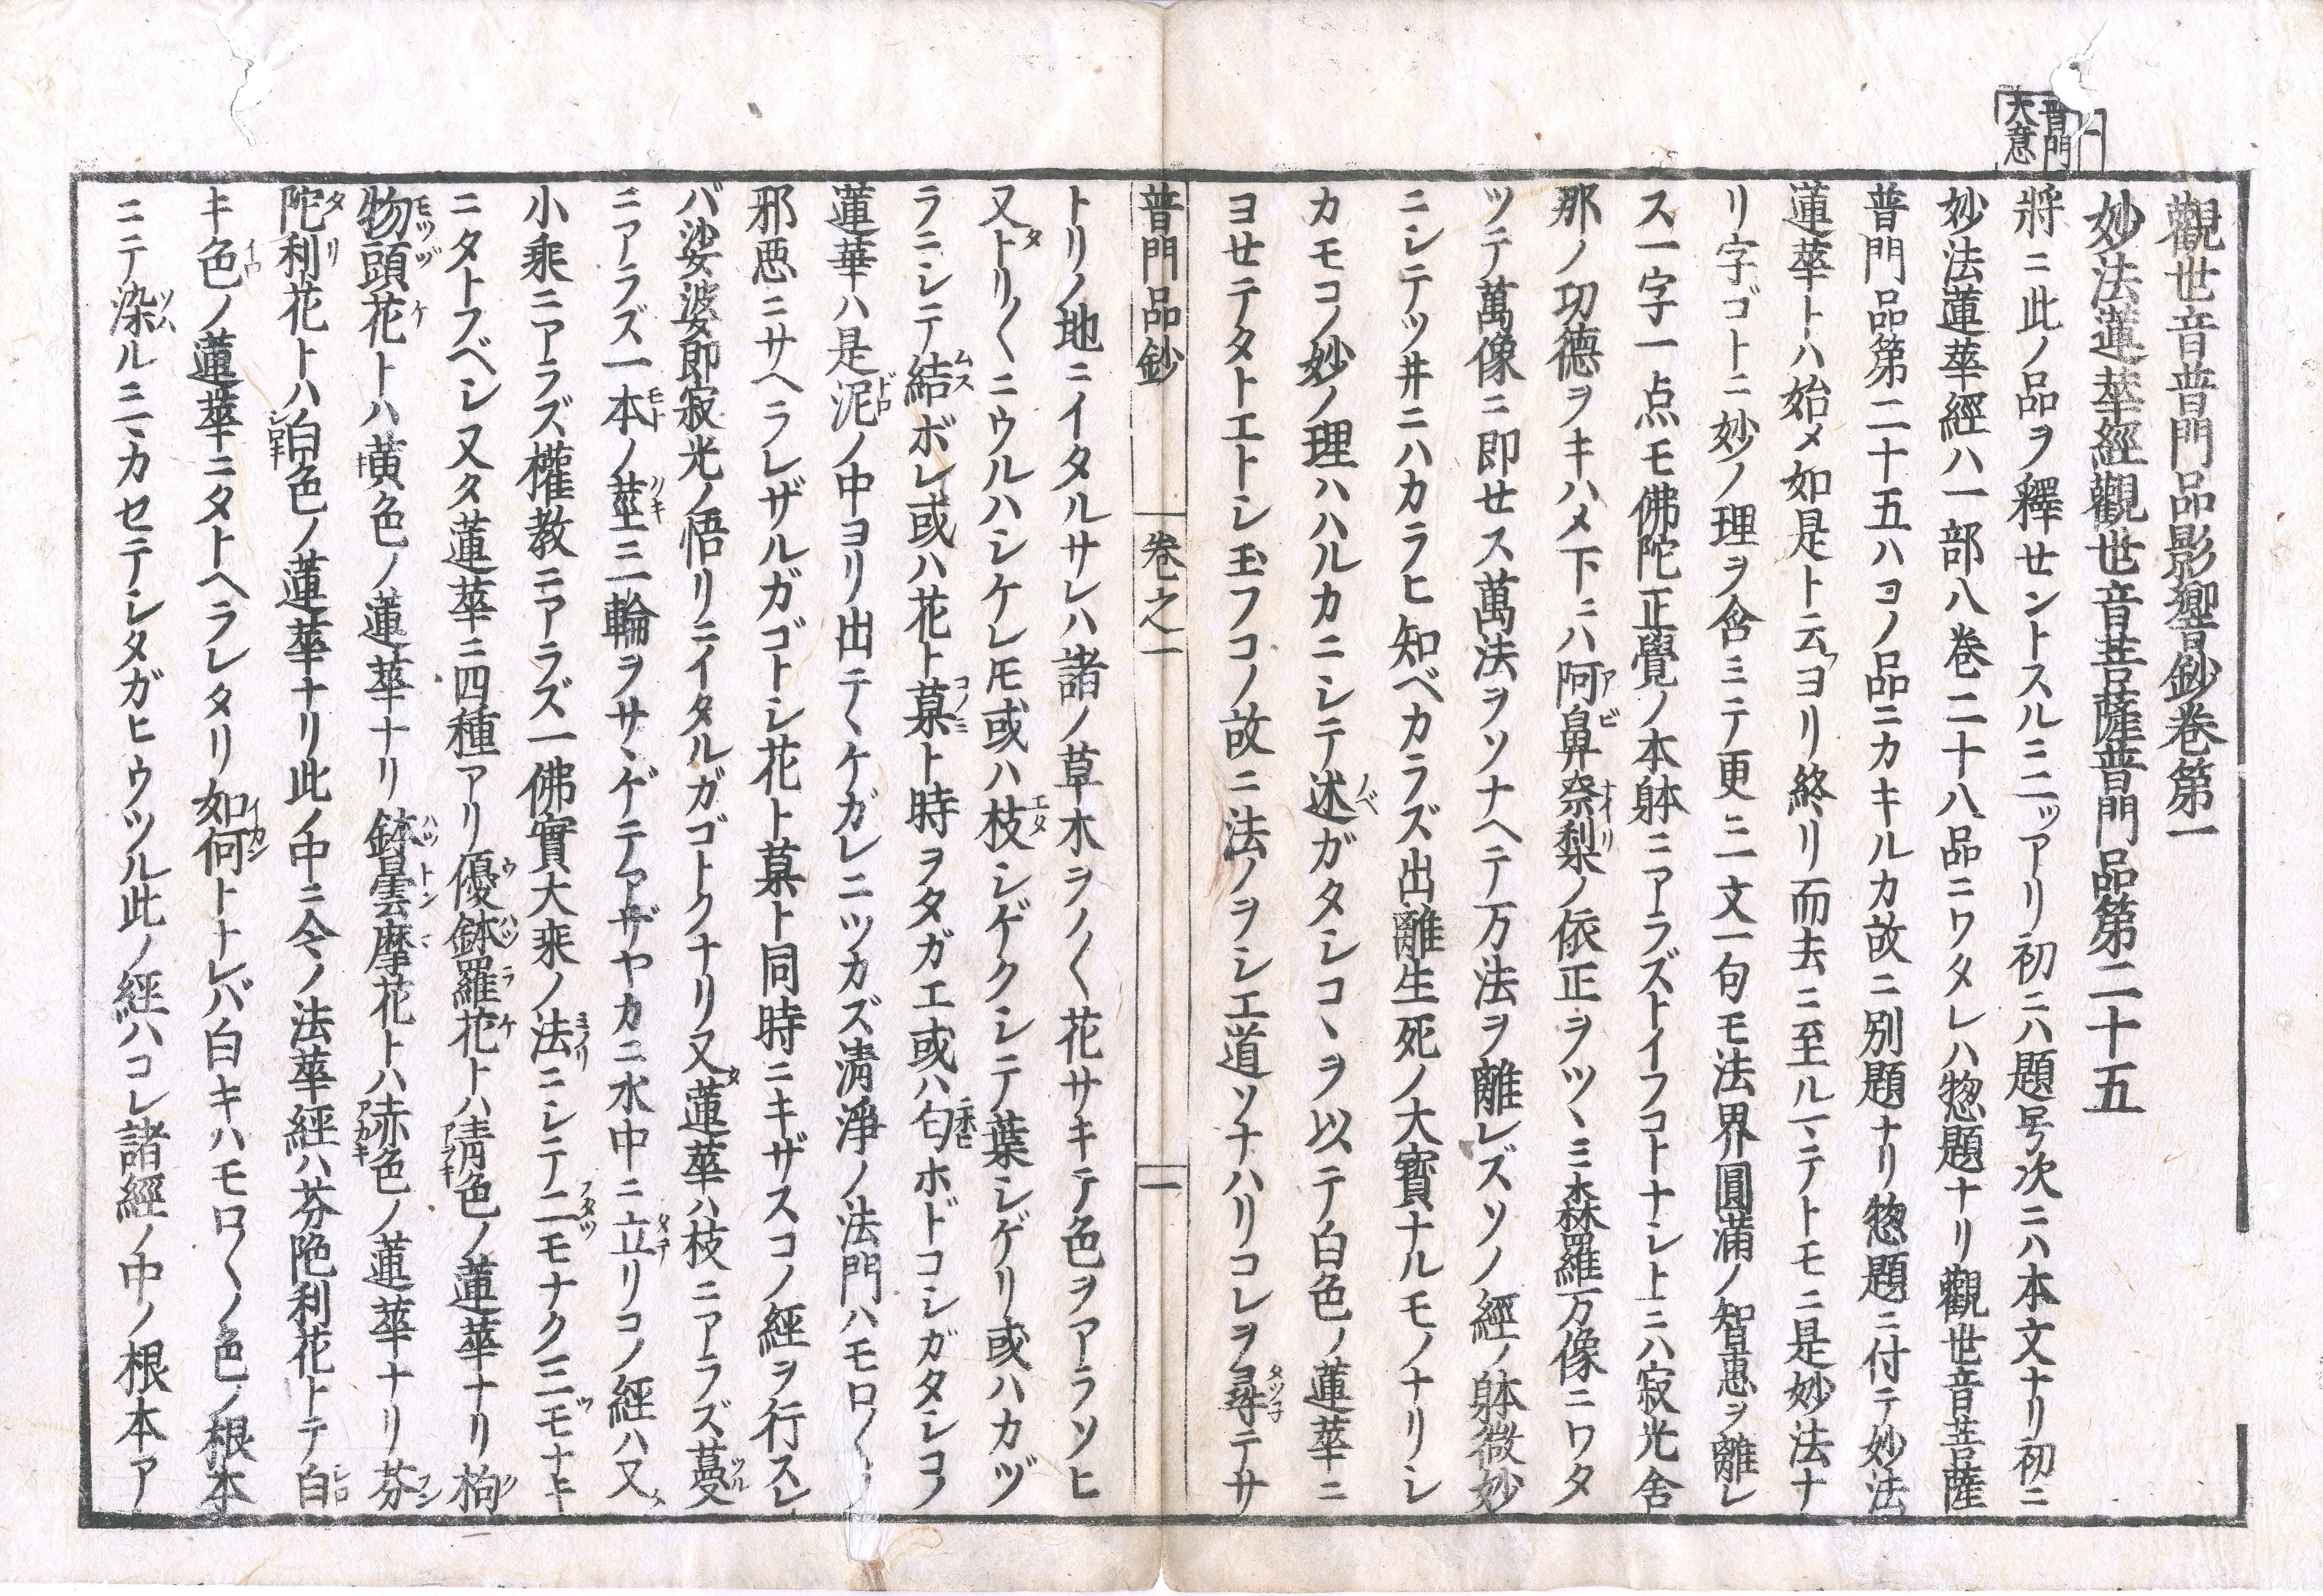 一
普門
大意
觀世音普門品影響鈔卷第一
妙法蓮華經觀世音菩薩普門品第二十五
將ニ此ノ品ヲ釋セントスルニ二ッアリ初ニハ題号次ニハ本文ナリ初ニ
妙法蓮華經ハ一部八巻二十八品ニワタレハ惣題ナリ觀世音菩薩
普門品第二十五ハコノ品ニカキルカ故ニ別題ナリ惣題ニ付テ妙法
蓮華トハ始メ如是ト云フヨリ終リ而去ニ至ルマテトモニ是妙法ナ
リ字ゴトニ妙ノ理ヲ含ミテ更ニ一文一句モ法界圓滿ノ智惠ヲ離レ
ス一字一点モ佛陀正覺ノ本躰ニアラズトイフコトナシ上ニハ寂光舎
那ノ功德ヲキハメ下ニハ阿鼻奈梨ノ依正ヲツヽミ森羅万像ニワタ
ツテ萬像ニ即せス萬法ヲソナヘテ万法ヲ離レズソノ經ノ躰微妙
ニシテツ井ニハカラヒ知ベカラズ出離生死ノ大寳ナルモノナリシ
カモコノ妙ノ理ハハルカニシテ述ガタシコヽヲ以テ白色ノ蓮華ニ
ヨせテタトエトシ玉フコノ故ニ法ノヲシエ道ソナハリコレヲ尋テサ
普門品鈔　卷之一　一
トリノ地ニイタルサレハ諸ノ草木ヲノ〱花サキテ色ヲアラソヒ
又トリ〱ニウルハシケレ𪜈或ハ枝シゲクシテ葉シゲリ或ハカヅ
ラニシテ結ボレ或ハ花ト菓ト時ヲタガエ或ハ匂ホドコシガタシコノ
蓮華ハ是泥ノ中ヨリ出テヽケガレニツカズ清淨ノ法門ハモロ〱ノ
邪惡ニサヘラレザルガゴトシ花ト菓ト同時ニキザスコノ經ヲ行スレ
バ娑婆即寂光ノ悟リニイタルガゴトクナリ又蓮華ハ枝ニアラズ蔓
ニアラズ一本ノ莖ニ輪ヲサヽゲテアザヤカニ水中ニ立リコノ經ハ又
小乘ニアラズ權教ニアラズ一佛實大乘ノ法ニシテ二モナク三モナキ
ニタトフベシ又タ蓮華ニ四種アリ優鉢羅花トハ青色ノ蓮華ナリ枸
物頭花トハ黄色ノ蓮華ナリ鉢曇摩花トハ赤色ノ蓮華ナリ芬
陀利花トハ白色ノ蓮華ナリ此ノ中ニ今ノ法華經ハ芬陁利花トテ白
キ色ノ蓮華ニタトヘラレタリ如何トナレバ白キハモロ〱ノ色ノ根本
ニテ染ルニヽカセテシタガヒウツル此ノ經ハコレ諸經ノ中ノ根本ア